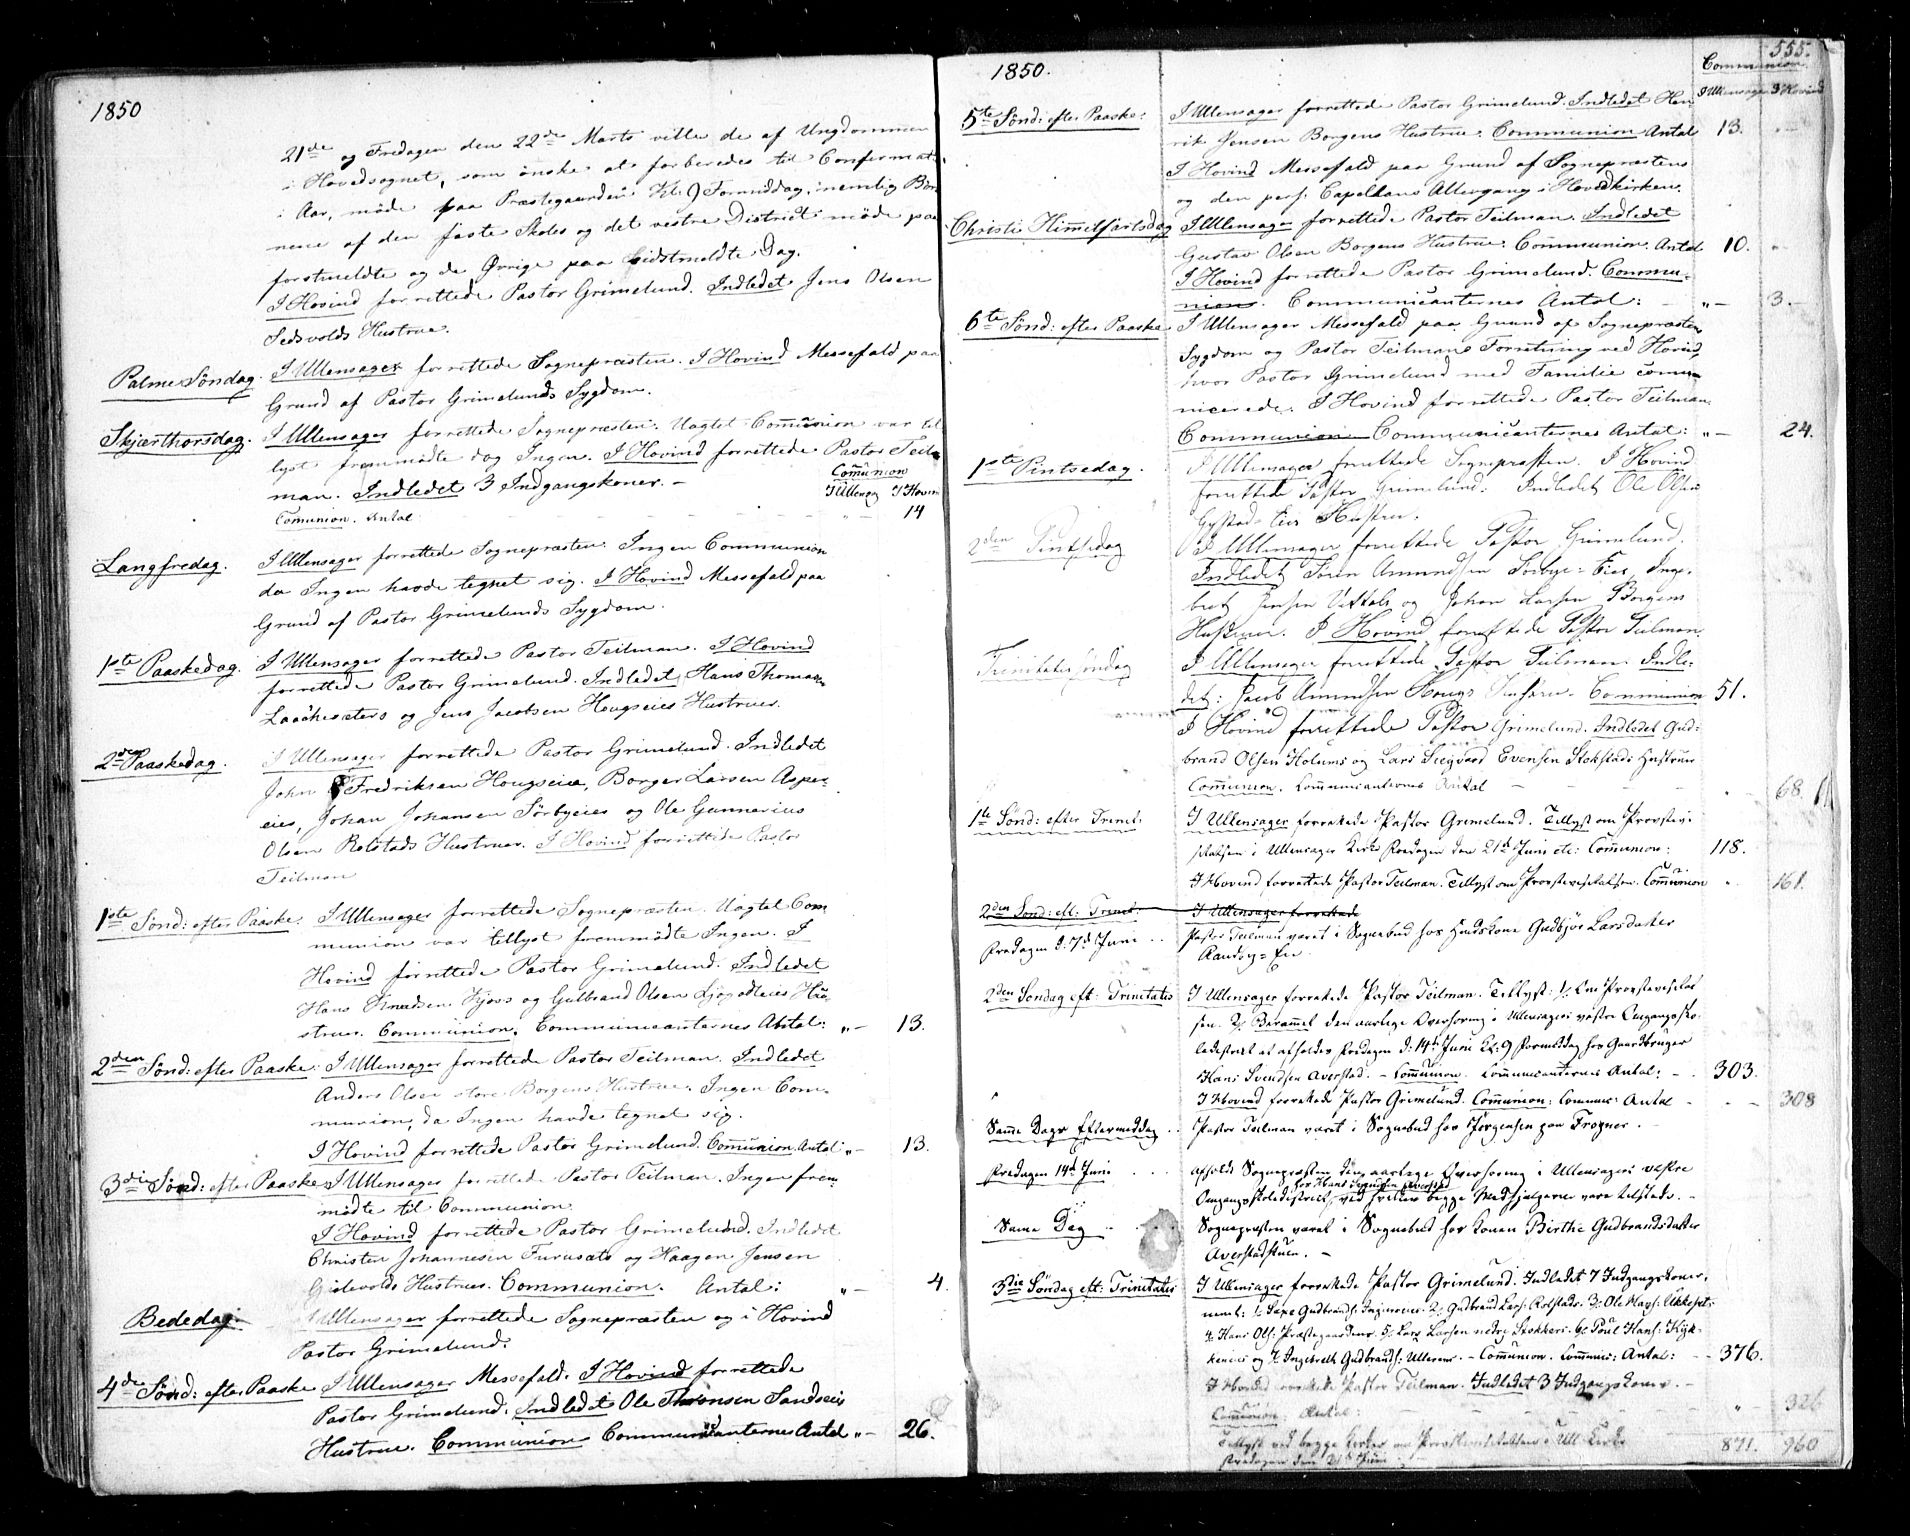 1850
21de og Fredagen den 22de Marts ville de af Ungdommen
i Hovedsognet, som ønske at forberedes til Confermat:
i Aar, møde paa Præstegaarden Kl. 9 Formiddag, nemlig Bør-
nene af den faste Skoles og det vestre District møde paa
forstmeldte og de Øvrige paa sidstmeldte Dag.
I Hovind forrettede Pastor Grimelund. Indledet Jens Olsen
Sedsvolds Hustrue.
Palme Søndag. I Ullensager forrettede Sognepræsten. I Hovind Messefald paa
Grund af Pastor Grimelunds Sygdom.
Skjærthorsdag. I Ullensager forrettede Sognepræsten. Uagtet Communion var til
lyst fremmødte dog Ingen. I Hovind forrettede Pastor Teil
man. Indledet 3 Indgangskoner. –
Comunion
I Ullensag I Hovin
Comunion. Antal 14
Langfredag. I Ullensager forrettede Sognepræsten. Ingen Communion
da Ingen havde tegnet sig. I Hovind Messefald paa
Grund af Pastor Grimelunds Sygdom.
1ste Paaskedag. I Ullensager forrettede Pastor Teilman. I Hovind
forrettede Pastor Grimelund. Indledet Hans Thomas
og Jens Jacobsen Hougseies Hustruer.
2den Paaskedag. I Ullensager forrettede Pastor Grimelund. Indledet
John Fredriksen Hougseie, Borger Larsen Asper-
eies, Johan Johansen Sörbyeies og Ole Gunnerius
Olsen Rolstads Hustruer. I Hovind forrettede Pastor
Teilman
1ste Sønd: efter Paaske. I Ullensager forrettede Sognepræsten. Uagtet Com
munion var tillyst fremmödte Ingen. I
Hovind forrettede Pastor Grimelund. Indledet
Hans Knudsen og Gulbrand Olsen Hu-
struer. Communion. Communicanternes Antal: „ – 13.
2den Sønd: efter Paaske: I Ullensager forrettede Pastor Teilman. Indledet
Anders Olsen store Borgens Hustrue. Ingen Com-
munion, da Ingen havde tegnet sig.
I Hovind forrettede Pastor Grimelund. Communion Antal „ – 13.
3die Sønd: efter Paaske I Ullensager forrettede Pastor Teilman. Ingen frem-
mødte til Communion
I Hovind forrettede Pastor Grimelund. Indledet
Christen Johannesen Furusats og Haagen Jensen
Hustruer. Communion. Antal: „ – 4.
Bededag. I Ullensager forrettede Sognepræsten og i Hovind
Pastor Grimelund.
4de Sønd: efter Paaske I Ullensager Messefald. I Hovind forrettede
Pastor Grimelund. Indledet Ole Thronsen Sandseies
Hustrue. Communion Communicanternes Antal „ – 26.
1850.
555.
Communion
I Ullensager I Hovind
5te Sønd: efter Paaske: I Ullensager forrettede Pastor Grimelund. Indledet Hen
rik Jensen Borgens Hustrue. Communion Antal 13.
I Hovind Messefald paa Grund af Sognepræstens
og den pers: Capellans Altergang i Hovedkirken.
Christi Himmelfartsdag I Ullensager forrettede Pastor Teilman. Indledet
Gustav Olsen Borgens Hustrue. Communion. Antal 10.
I Hovind forrettede Pastor Grimelund. Commu-
nion. Communicanternes Antal: „ – 3.
6te Sønd: efter Paaske I Ullensager Messefald paa Grund af Sognepræstens
Sygdom og Pastor Teilmans Forretning ved Hovind,
hvor Pastor Grimelund med Familie commu-
nicerede. I Hovind forrettede Pastor Teilman.
Communion Communicanternes Antal: „ – 24.
1ste Pintsedag. I Ullensager forrettede Sognepræsten. I Hovind
forrettede Pastor Grimelund. Indledet Ole Olsen
Gystad-Eies Hustru.
2den Pintsedag I Ullensager forrettede Pastor Grimelund.
Indledet Søren Amundsen Sørbye-Eies, Inge-
bret Jensen og Johan Larsen Borgens
Hustruer. I Hovind forrettede Pastor Teilman.
Trinitatis søndag I Ullensager forrettede Pastor Teilman. Indle-
det: Jacob Amundsen Hougs Hustrue. Communion 51.
I Hovind forrettede Pastor Grimelund. Indledet Gud-
brand Olsen Holums og Lars Siegvard Evensen Stokstads Hustruer
Comunion. Communicanternes Antal – 68
1ste Sønd: efter Trinit: I Ullensager forrettede Pastor Grimelund. Tillyst om Provstevi-
sitatsen i Ullensager Kirke Fredagen den 21de Juni etc: Communion: 118.
I Hovind forrettede Pastor Teilman. Tillyst om Provstevisitatsen. Communion „ 161.
2den Sønd: eft: Trinit: I Ullensager forrettede
Fredagen d: 7de Juni .. Pastor Teilman været i Sognebud hos Huuskone Gudbjør Larsdatter
Randby-Eie
2den Søndag eft: Trinitatis I Ullensager forrettede Pastor Teilman. Tillyst: 1/ Om Provstevisitat
sen. 2/ Berammet den aarlige Overhøring i Ullensagers vestre Omgangssko-
ledistrict at afholdes Fredagen d: 14de Juni Kl: 9 Formiddag hos Gaardbruger
Hans Svendsen Averstad. – Communion. Communicanternes Antal: – 303.
I Hovind forrettede Pastor Grimelund. Communion: Communic: Antal – 308
Samme Dags Eftermiddag .. Pastor Teilman været i Sognebud hos Jørgensen paa Frogner. –
Fredagen 14de Juni ... afholdt Sognepræsten den aarlige Overhøring i Ullensagers vestre
hos Hans Svendsen Averstad
Omgangsskoledistrict, ved hvilken begge Medhjælperne vare tilstede. –
Samme Dag .. Sognepræsten været i Sognebud hos Konen Birthe Gudbrandsdatter
Averstadstuen. –
3die Søndag eft: Trinitatis I Ullensager forrettede Pastor Grimelund. Indledet 7 Indgangskoner,
neml: 1/ Gudbrands: 2/ Gudbrand Lars: Rolstads. 3/ Ole Mays:
4/ Hans Ols: Præstegaardens. 5/ Lars Larsen nedre Stokkers. 6/ Poul Hans: Kjøk-
keneies og 7/ Ingebreth Gudbrands: Ullerens. – Communion. Communic: Antal: – 376.
I Hovind forrettede Pastor Teilman. Indledet 3 Indgangskoner. –
Communion. Antal: – „ – 326
Tillyst ved begge Kirker om Provstevisitatsen i Ull: Kirke
Fredagen den 21de Juni
871. 960